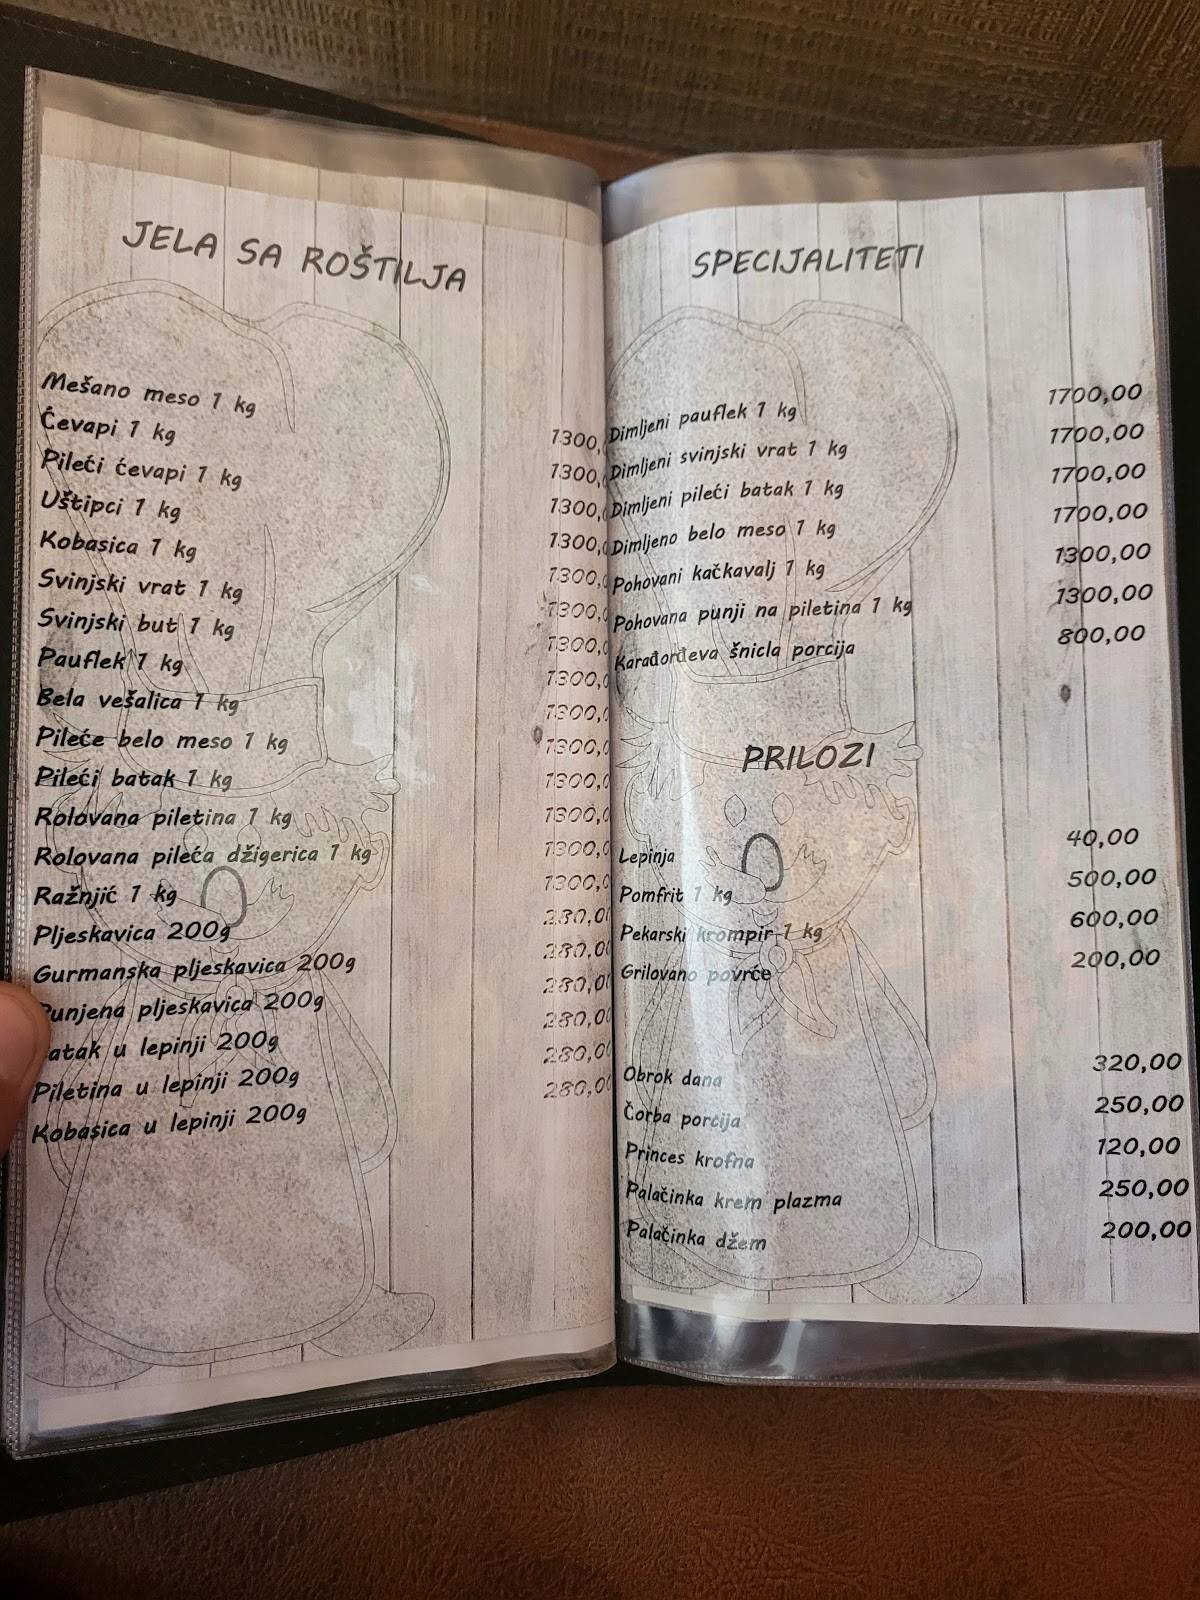 JELA SA ROŠTILJA
Mešano meso 1 kg 1300,
Ćevapi 1 kg 1300,0
Pileći ćevapi 1 kg 1300,0
Uštipci 1 kg 1300,0
Kobasica 1 kg 1300,0
Svinjski vrat 1 kg 1300,0
Svinjski but 1 kg 1300,0
Pauflek 1 kg 1300,0
Bela vešalica 1 kg 1300,0
Pileće belo meso 1 kg 1300,0
Pileći batak 1 kg 1300,0
Rolovana piletina 1 kg 1300,0
Rolovana pileća džigerica 1 kg 1300,0
Ražnjić 1 kg 1300,0
Pljeskavica 200g 280,00
Gurmanska pljeskavica 200g 280,00
Punjena pljeskavica 200g 280,00
atak u lepinji 200g 280,00
Piletina u lepinji 200g 280,00
Kobasica u lepinji 200g 280,00
SPECIJALITETI
Dimljeni pauflek 1 kg 1700,00
Dimljeni svinjski vrat 1 kg 1700,00
Dimljeni pileći batak 1 kg 1700,00
Dimljeno belo meso 1 kg 1700,00
Pohovani kačkavalj 1 kg 1300,00
Pohovana punji na piletina 1 kg 1300,00
Karađorđeva šnicla porcija 800,00
PRILOZI
Lepinja 40,00
Pomfrit 1 kg 500,00
Pekarski krompir 1 kg 600,00
Grilovano povrće 200,00
Obrok dana 320,00
Čorba porcija 250,00
Princes krofna 120,00
Palačinka krem plazma 250,00
Palačinka džem 200,00